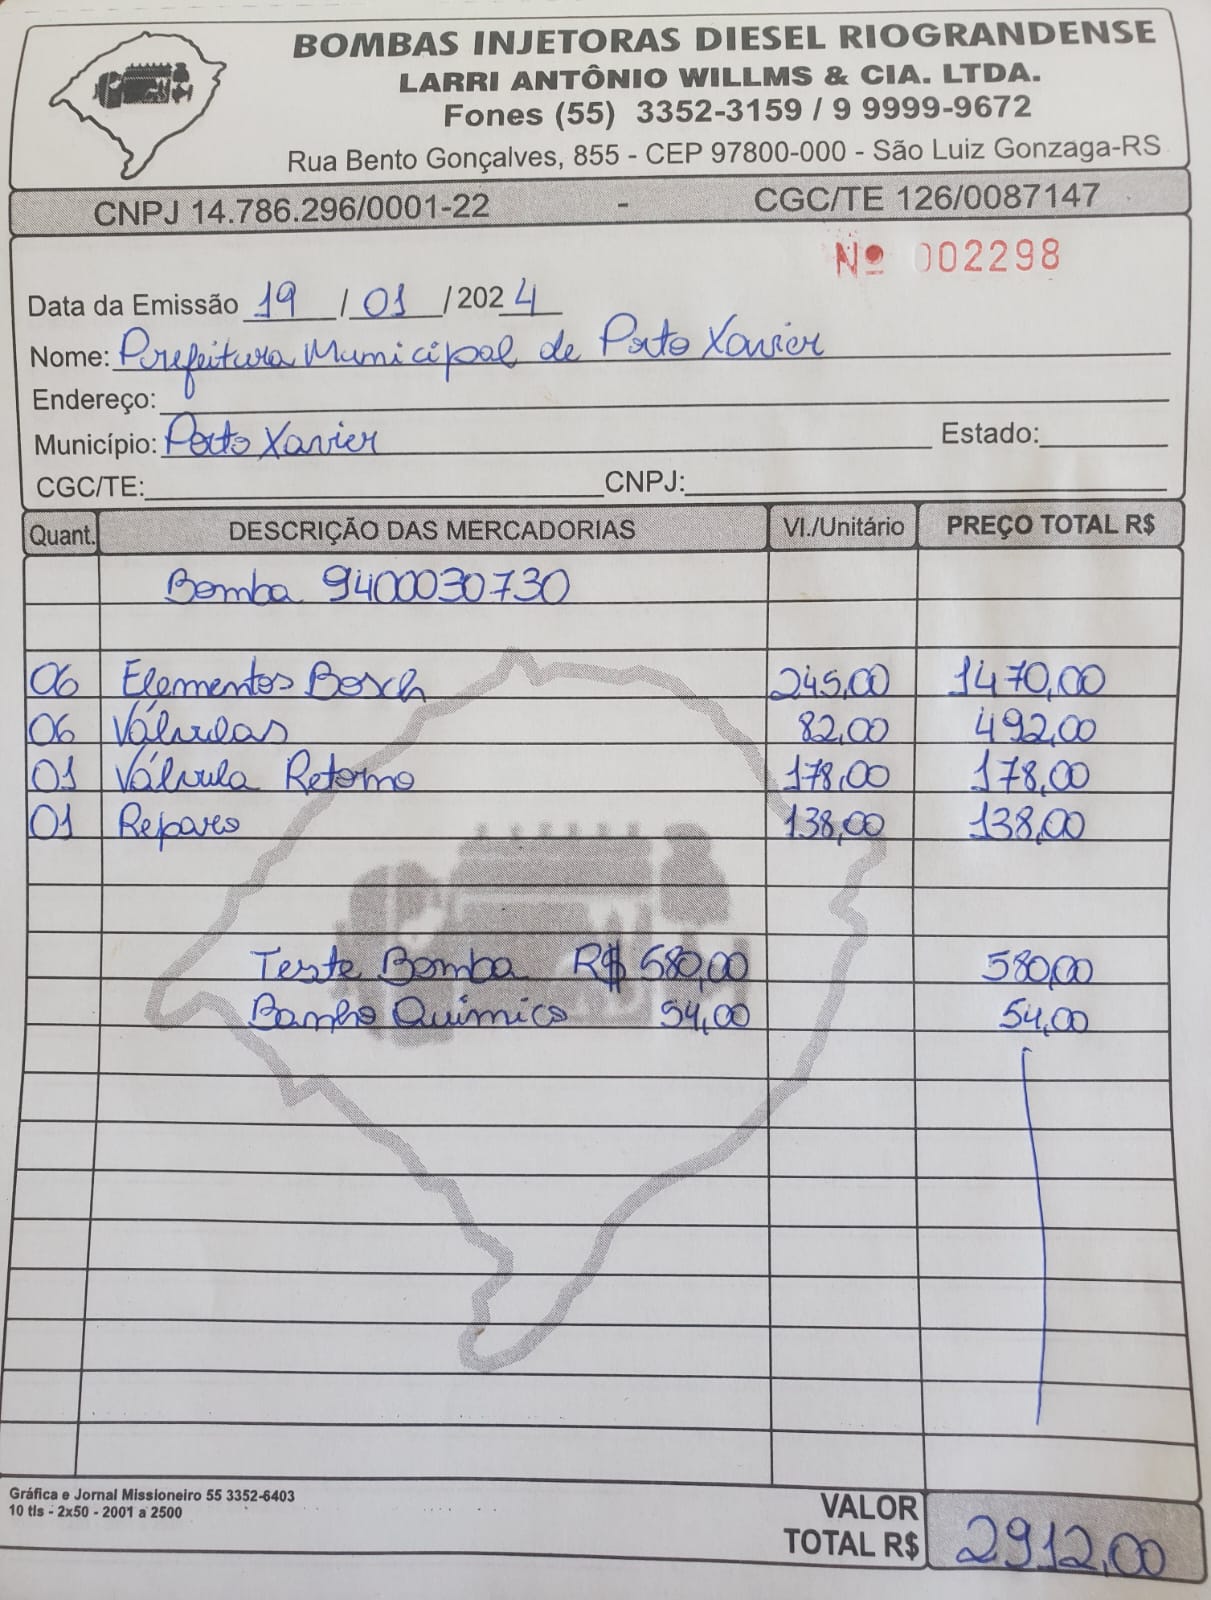 BOMBAS INJETORAS DIESEL RIOGRANDENSE
LARRI ANTÔNIO WILLMS & CIA. LTDA.
Fones (55) 3352-3159 / 9 9999-9672
Rua Bento Gonçalves, 855 - CEP 97800-000 - São Luiz Gonzaga-RS
CNPJ 14.786.296/0001-22 - CGC/TE 126/0087147
Nº 002298
Data da Emissão 19 / 01 / 2024
Nome: Prefeitura Municipal de Porto Xavier
Endereço:
Município: Porto Xavier Estado:
CGC/TE: CNPJ:
Quant. DESCRIÇÃO DAS MERCADORIAS Vl./Unitário PREÇO TOTAL R$
Bomba 9400030730
06 Elementos Bosch 245,00 1470,00
06 Válvulas 82,00 492,00
01 Válvula Retorno 178,00 178,00
01 Reparo 138,00 138,00
Teste Bomba R$ 580,00 580,00
Banho Químico 54,00 54,00
Gráfica e Jornal Missioneiro 55 3352-6403
10 tls - 2x50 - 2001 a 2500
VALOR
TOTAL R$ 2912,00